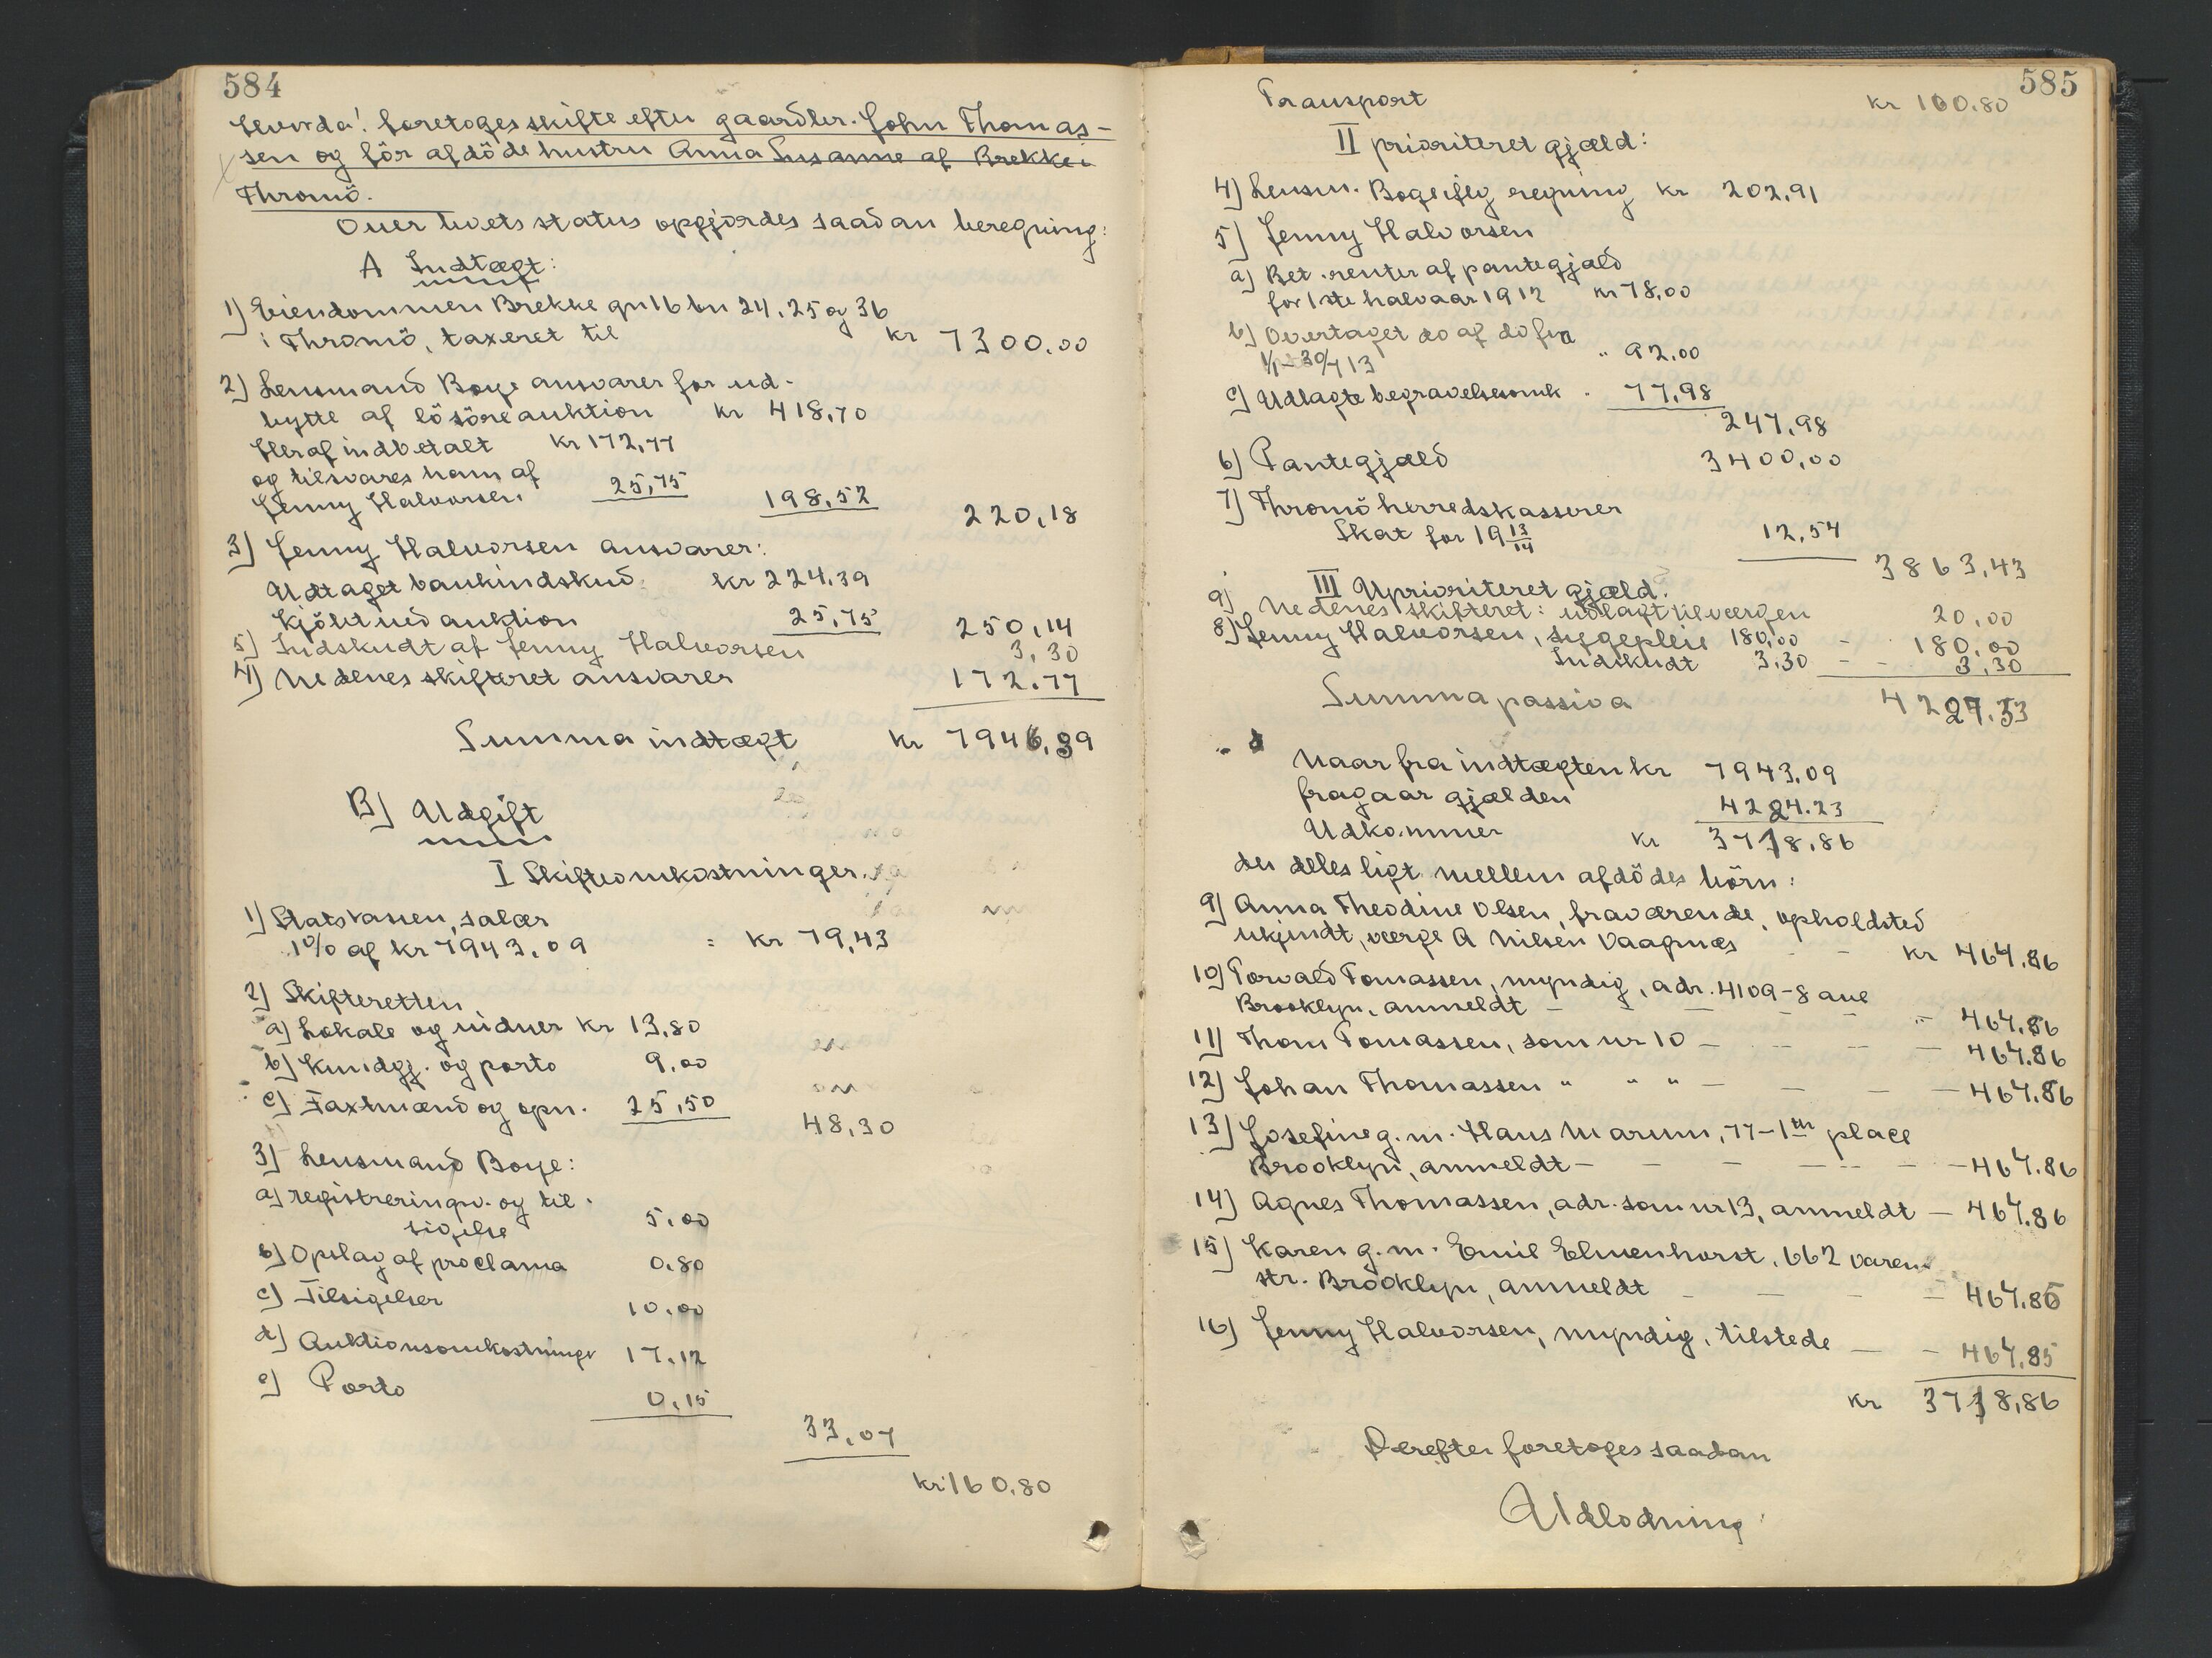 584
Hvorda! foretoges skifte efter gaardbr. John Thomas-
sen og för afdöde hustru Anna Susanne af Brekke i
Thromö.
Over boets status opgjordes saadan beregning:
A Indtægt:
1) Eiendommen Brekke gn 16 bn 24, 25 og 36
i Thromö, taxeret til kr 7300.00
2) Lensmand Boye ansvarer for ud-
bytte af lösöreauktion kr 418,70
Heraf indbetalt kr 172,77
og tilsvares ham af
Jenny Halvorsen 25,75 198,52 220,18
3) Jenny Halvorsen ansvarer:
Udtaget bankindskud kr 224.39
Kjöbt ved auktion 25,75 250,14
5) Indskudt af Jenny Halvorsen 3,30
4) Nedenes skifteret ansvarer 172.77
Summa indtægt kr 7946,39
B) Udgift
I Skifteomkostninger.
1) Statskassen, salær
1% af kr 7943.09 = kr 79,43
2) Skifteretten
a) Lokale og vidner kr 13,80
b) Kundgj. og porto 9.00
c) Taxtmænd og opn. 25,50 48,30
3) Lensmand Boye:
a) registreringv. og til-
sigelse 5.00
b) Opslag af proclama 0.80
c) Tilsigelser 10.00
d) Auktionsomkostninger 17.12
e) Porto 0,15
33.07
kr 160.80
585
Transport kr 160.80
II prioriteret gjæld:
4) Lensm. Boye iflg regning kr 202,91
5) Jenny Halvorsen
a) Bet. renter af pantegjæld
for 1ste halvaar 1912 kr 78,00
b) Overtaget do af do fra
1/1-30/4 13 " 92.00
c) Udlagte begravelsesomk. 77,98
247,98
6) Pantegjæld 3400,00
7) Thromö herredskasserer
Skat for 19 13/14 12,54
3863,43
III Uprioriteret gjæld:
9) Nedenes skifteret: udlagt til værgen 20.00
8) Jenny Halvorsen, sygepleie 180,00 - 180.00
Indskudt 3,30 - - 3,30
Summa passiva 4227.53
Naar fra indtægten kr 7943,09
fragaar gjælden 4224.23
Udkommer kr 3718,86
der deles ligt mellem afdödes börn:
9) Anna Theodine Olsen, fraværende, opholdsted
ukjendt, værge A Nilsen Vaagnæs - - kr 464.86
10) Torvald Tomassen, myndig, adr. 4109-8 ave
Brooklyn, anmeldt - - - - - " - 464.86
11) Thom Tomassen, som nr 10 - - - - 464.86
12) Johan Thomassen " " " - - - - 464.86
13) Josefine g. m. Hans Marum, 77-1th place
Brooklyn, anmeldt - - - - - - 464.86
14) Agnes Thomassen, adr. som nr 13, anmeldt - 464.86
15) Karen g. m. Emil Elmenhorst, 662
str. Brooklyn, anmeldt - - - - 464.85
16) Jenny Halvorsen, myndig, tilstede - - 464.85
kr 3718,86
Derefter foretoges saadan
Udlodning